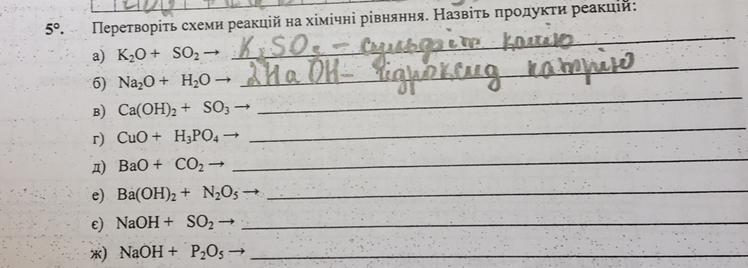 5°. Перетворіть схеми реакцій на хімічні рівняння. Назвіть продукти реакцій:
а) K₂O + SO₂ → K₂SO₃ – сульфіт калію
б) Na₂O + H₂O → 2NaOH – гідроксид натрію
в) Ca(OH)₂ + SO₃ →
г) CuO + H₃PO₄ →
д) BaO + CO₂ →
е) Ba(OH)₂ + N₂O₅ →
є) NaOH + SO₂ →
ж) NaOH + P₂O₅ →